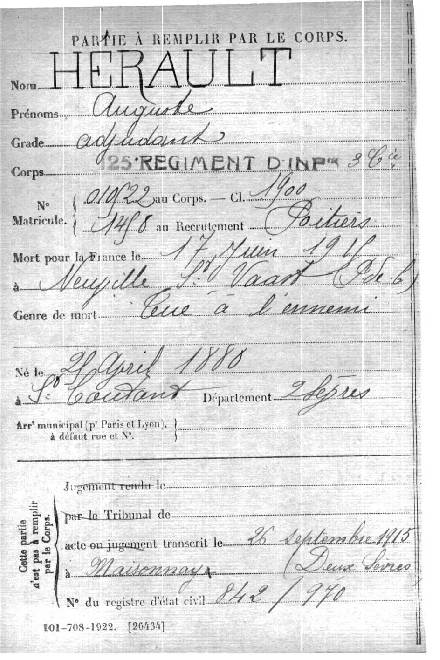 PARTIE À REMPLIR PAR LE CORPS.
Nom HÉRAULT
Prénoms Auguste
Grade adjudant
Corps 125 REGIMENT D'INFrie 3 Cie
N° Matricule. { 010622 au Corps. — Cl. 1900
1498 au Recrutement Poitiers
Mort pour la France le 17 Juin 1915
à Neuville St Vaast (P de C)
Genre de mort Tué à l'ennemi
Né le April 1880
à St Coutant Département 2 Sèvres
Arrt municipal (pr Paris et Lyon), à défaut rue et N°. }
Cette partie n'est pas à remplir par le Corps.
Jugement rendu le
par le Tribunal de
acte ou jugement transcrit le 26 septembre 1915
à Maisonnay (Deux Sèvres
N° du registre d'état civil 842/970
101-708-1922. [26434]